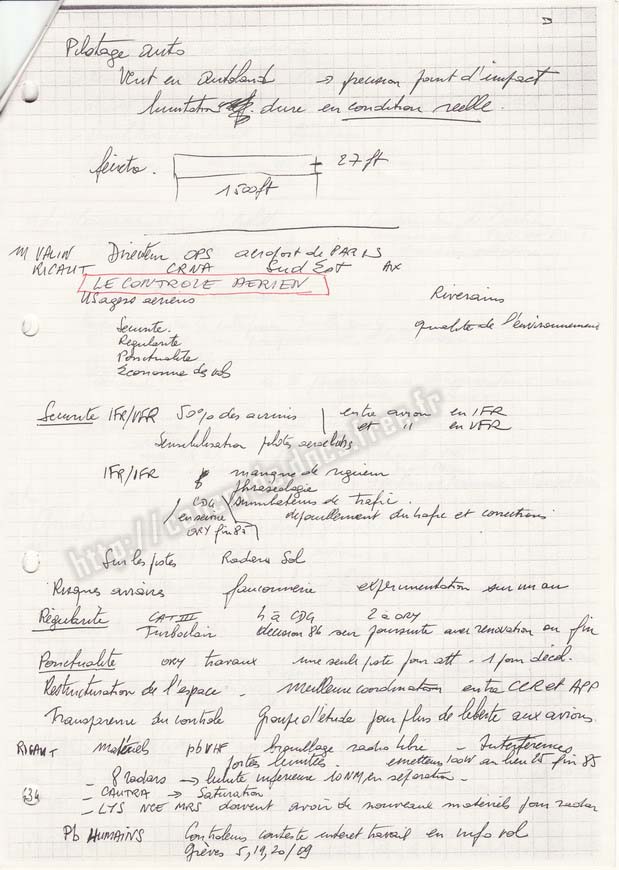 Pilotage auto
Vent en autoland → precision point d'impact
limitation dure en condition reelle.
27 ft
1500 ft
M VALIN Directeur OPS aeroport de PARIS
RIGAUT CRNA Sud Est AX
LE CONTROLE AERIEN
Usagers aeriens Riverains
Securite. qualite de l'environnement
Regularite
Ponctualite
Economie des vols
Securite IFR/VFR 50% des airmiss entre avion en IFR
et " en VFR
Sensibilisation pilotes aeroclubs
IFR/IFR manque de rigueur
phraseologie
CDG simulateurs de trafic.
en service depouillement du trafic et corrections
ORY fin 85
Sur les pistes Radars Sol
Risques aviaires fauconnerie experimentation sur un an
Régularite CAT III 4 à CDG 2 à ORY
Turboclair decision 86 si poursuite avec renovation ou fin
Ponctualite ORY travaux une seule piste pour att - 1 pour décol.
Restructuration de l'espace - meilleure coordination entre CCR et APP
Transparence du controle Groupe d'étude pour plus de liberte aux avions.
RIGAUT Matériels pb VHF brouillage radio libre - Interferences
portées limitées. emetteurs 100W au lieu 25 fin 85
- 8 radars → limite inferieure 10 NM en séparation -
634 - CAUTRA → Saturation
- LYS NCE MRS doivent avoir de nouveaux matériels pour radar
Pb HUMAINS Controleurs conteste interet travail en info vol
Grèves 5, 19, 20/09
http://
.fr